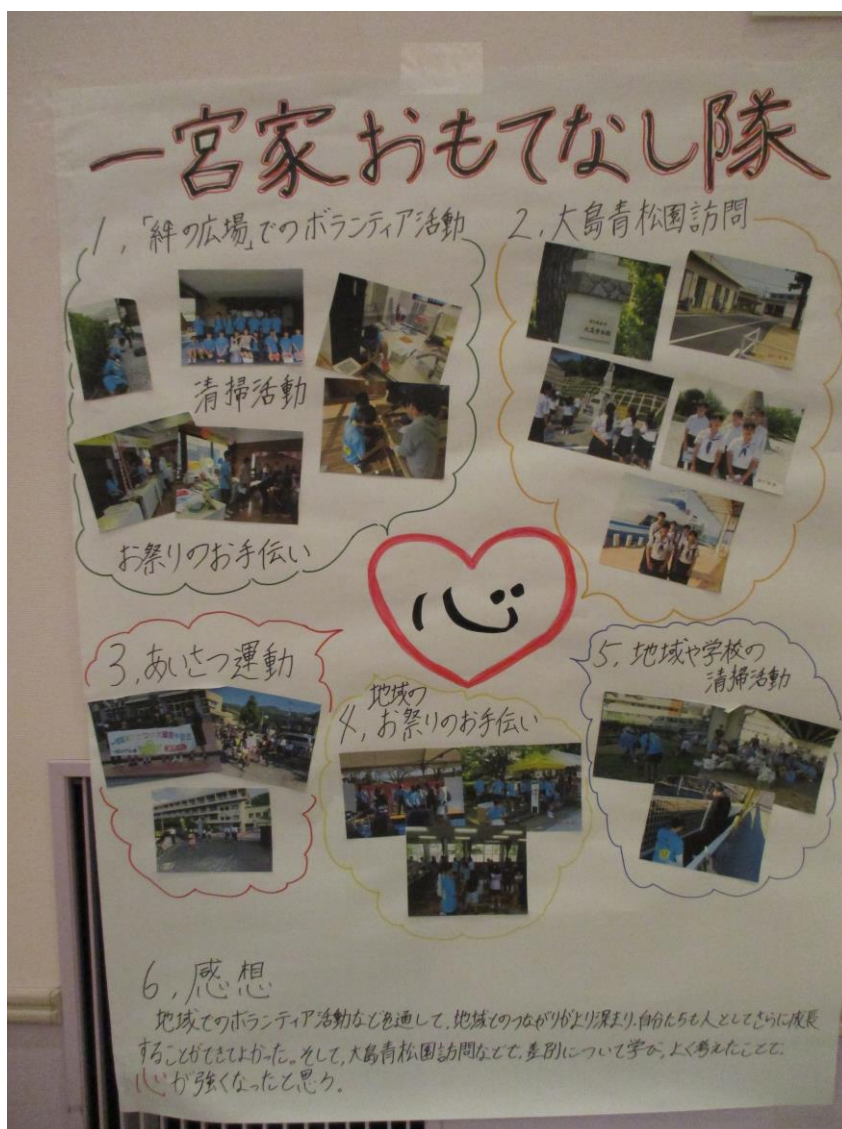 一宮家おもてなし隊
1,「絆の広場」でのボランティア活動
清掃活動
お祭りのお手伝い
2,大島青松園訪問
大島青松園
心
3,あいさつ運動
4,地域の
お祭りのお手伝い
5,地域や学校の
清掃活動
6,感想
地域でのボランティア活動などを通して、地域とのつながりがより深まり、自分たちも人としてさらに成長
することができてよかった。そして、大島青松園訪問などで、差別について学び、よく考えたことで、
心が強くなったと思う。